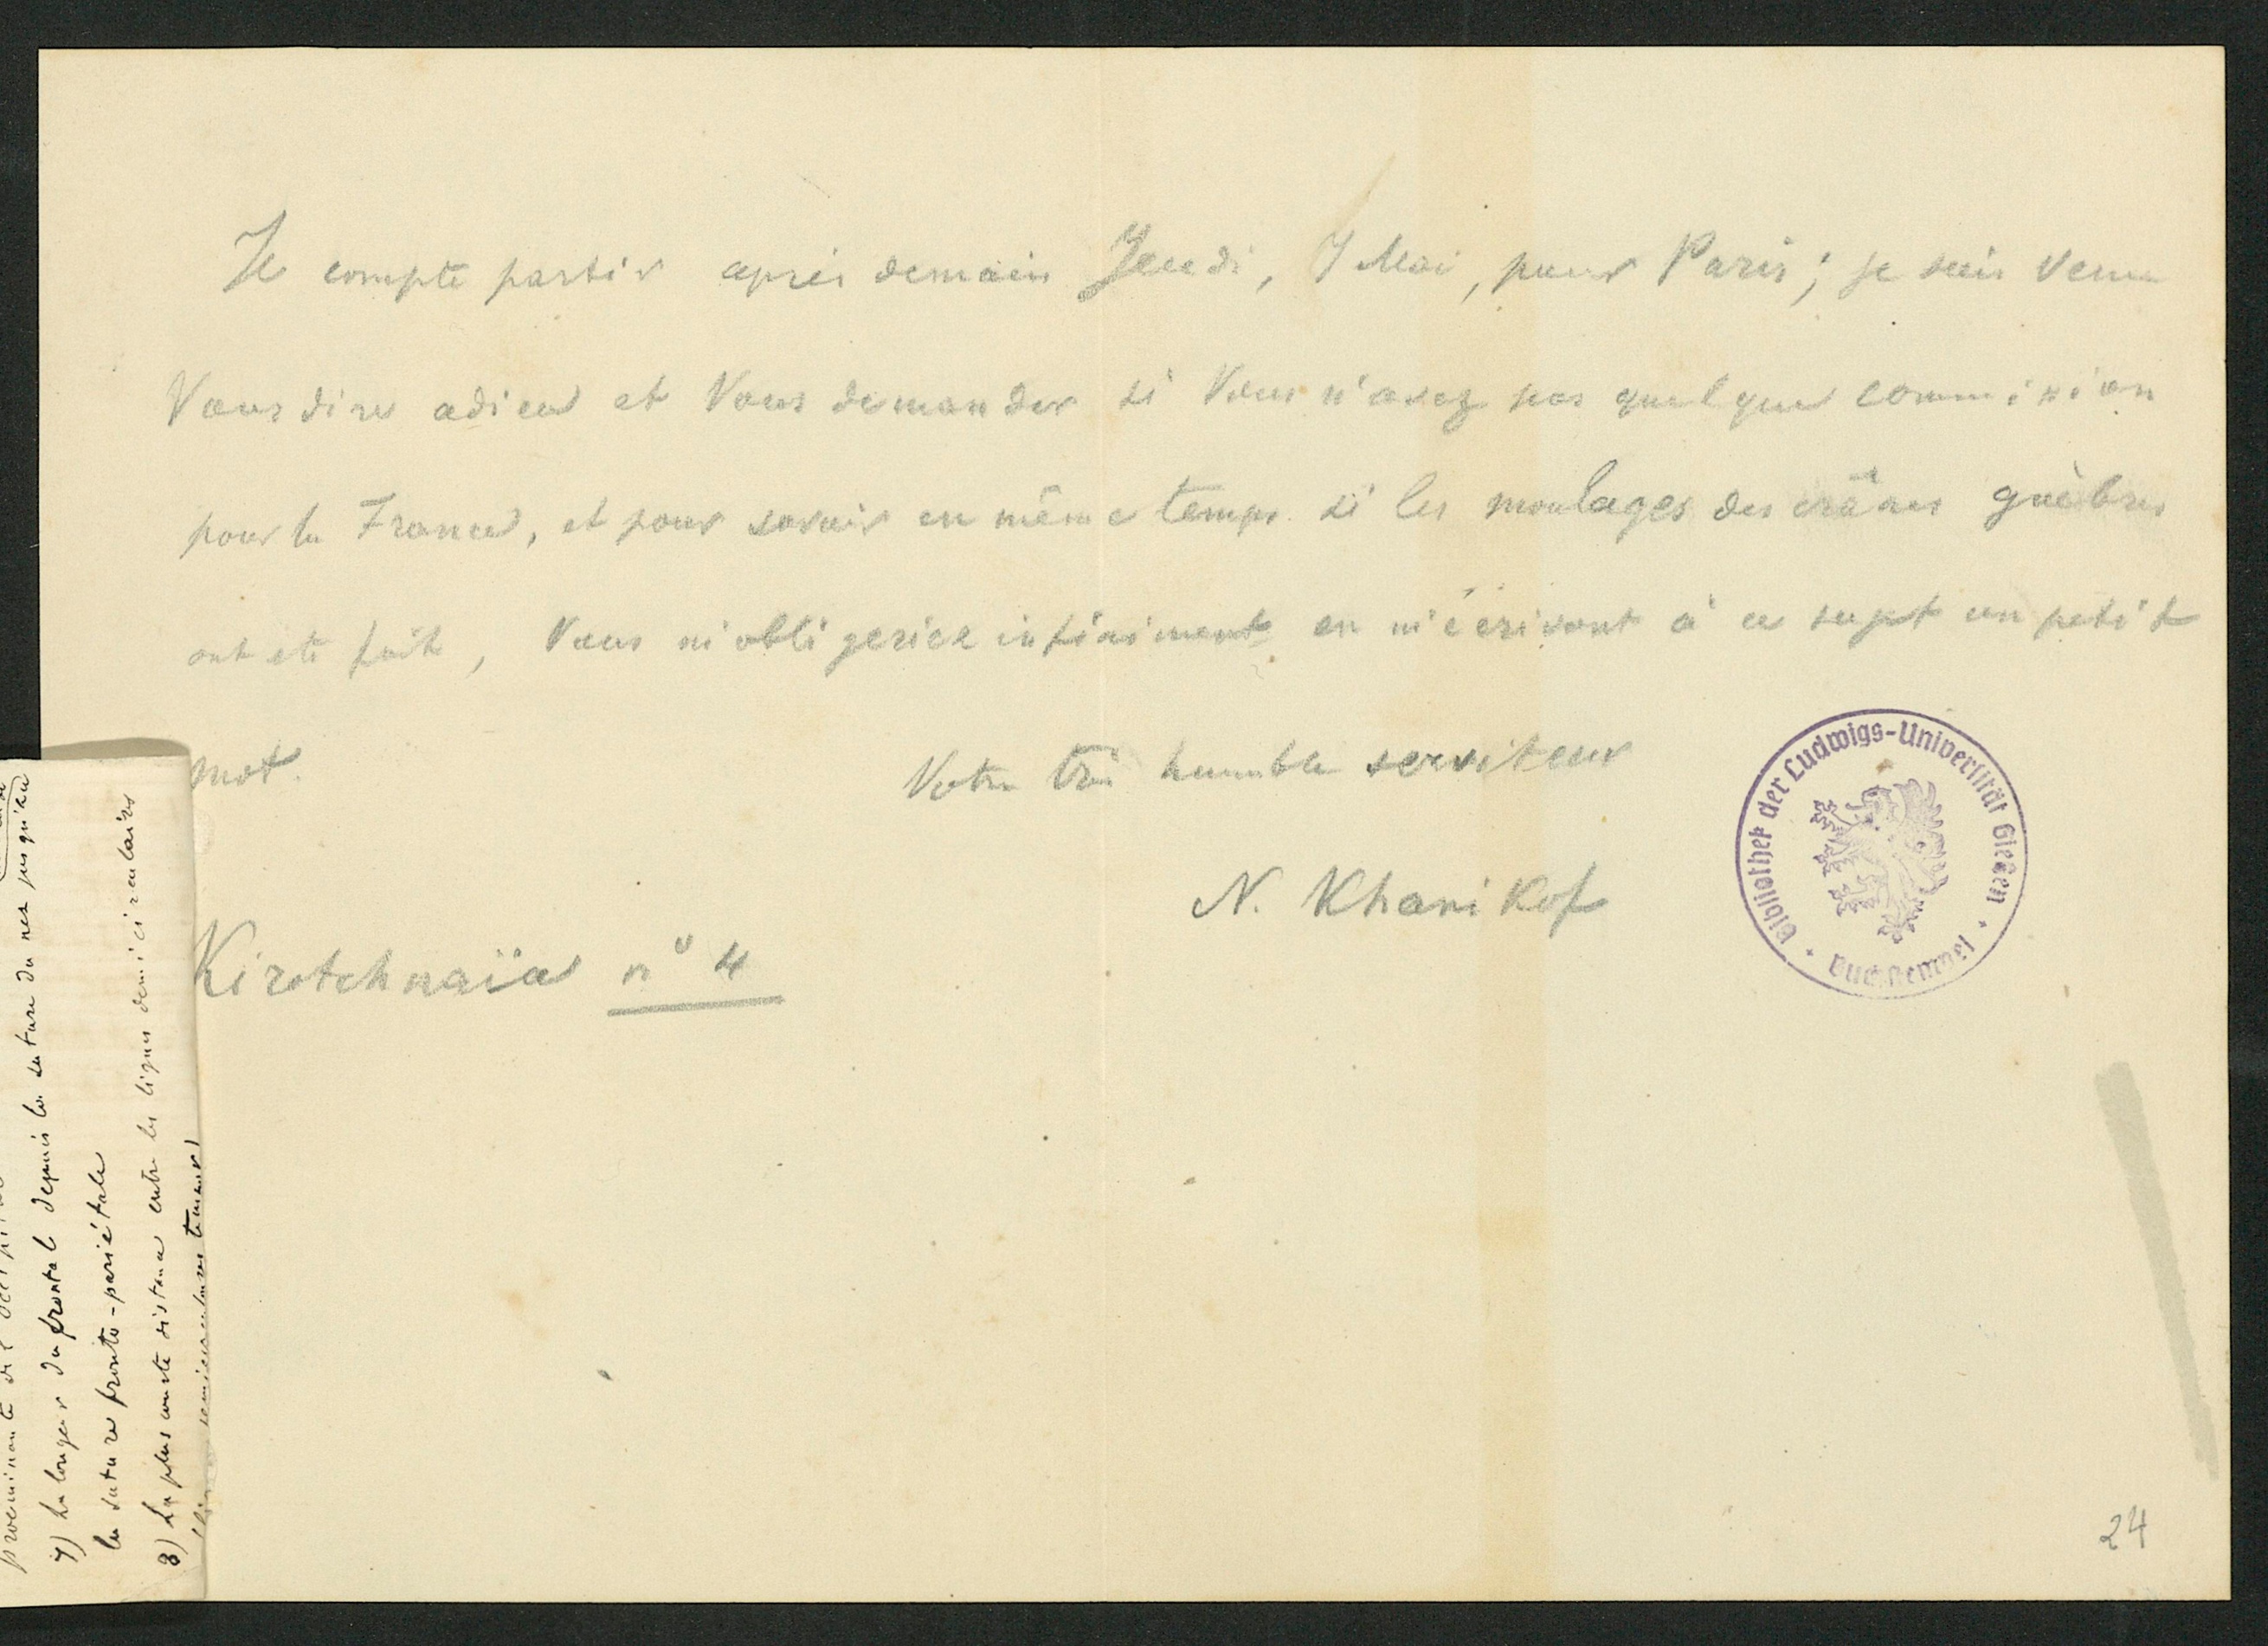 Je compte partir après demain Jeudi, 7 Mai, pour Paris; je suis venu
Vous dire adieu et Vous demander si Vous n'avez pas quelque commission
pour la France, et pour savoir en même temps si les moulages des crânes guèbres
ont été faits, Vous m'obligeriez infiniment en m'écrivant à ce sujet un petit
mot.
Votre très humble serviteur
N. Khanikof
Kirotchnaïa n° 4
Bibliothek der Ludwigs-Universität Gießen
Buchstempel
24
7) La longeur du frontal depuis la suture du nez jusqu'à la
la suture fronto-pariétale
8) La plus courte distance entre les lignes demicirculaires